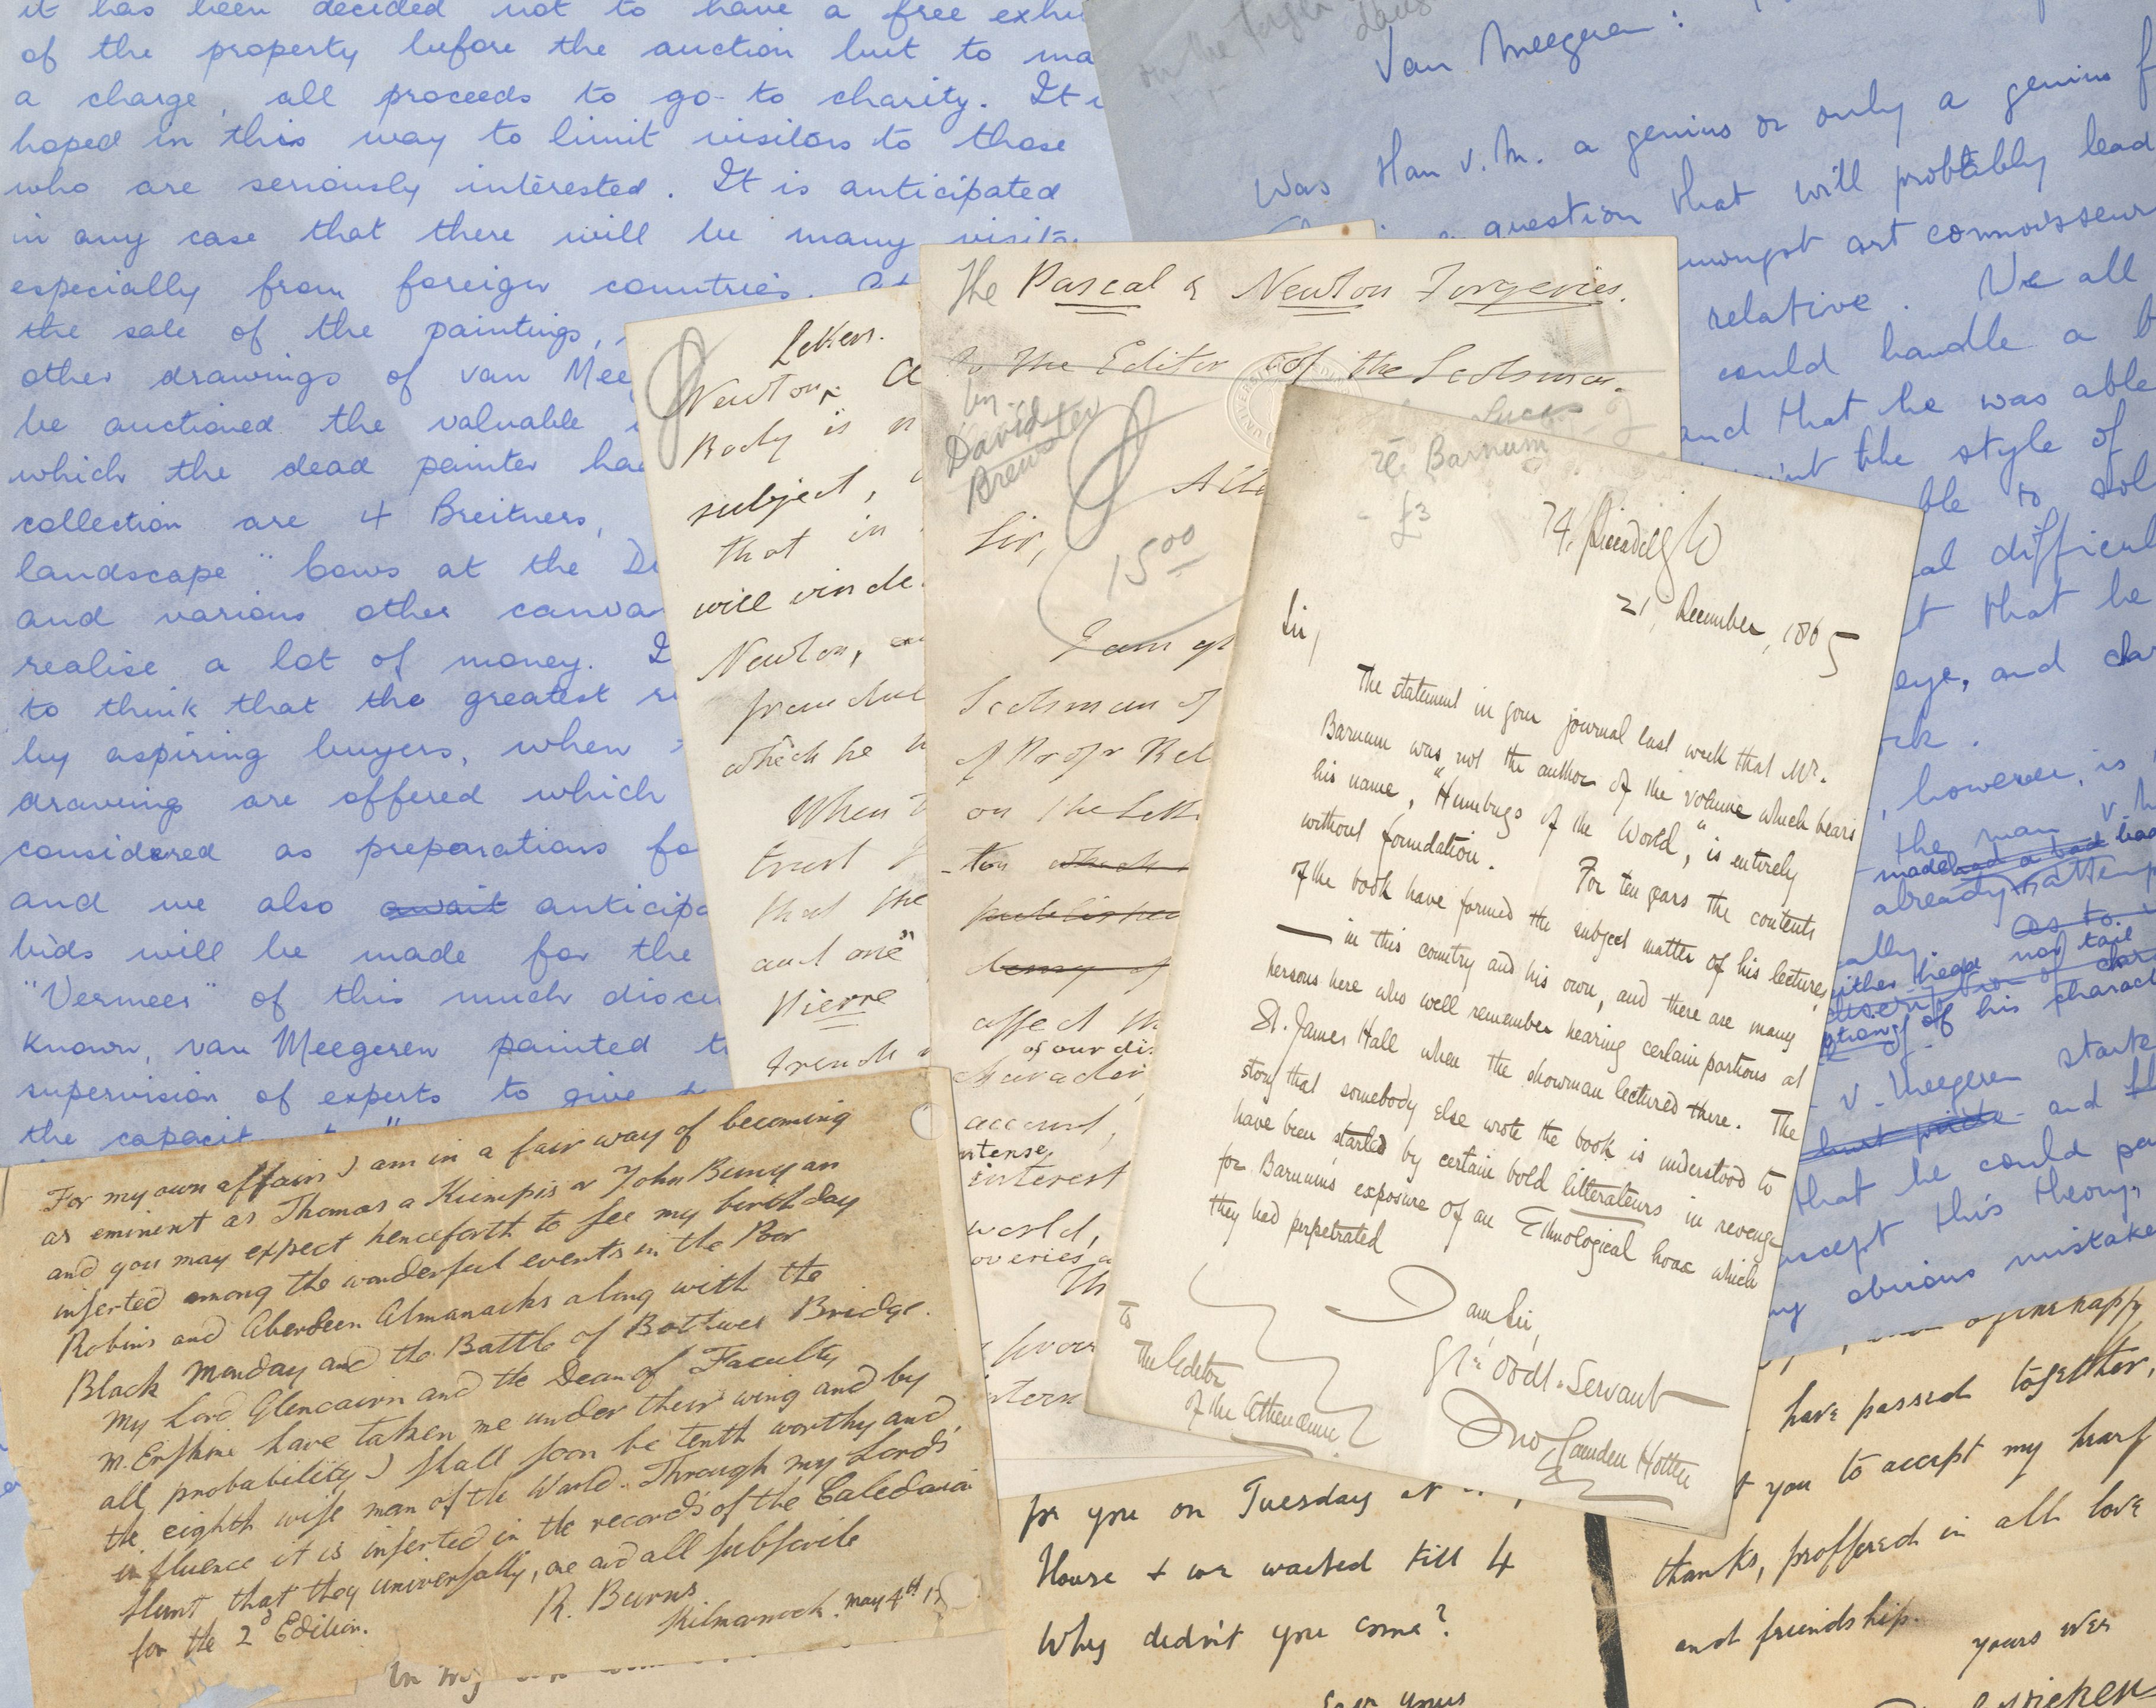 it has been decided not to have a free exhi
of the property before the auction but to ma
a charge, all proceeds to go to charity. It i
hoped in this way to limit visitors to those
who are seriously interested. It is anticipated
in any case that there will be many visito
especially from foreign countries. At
the sale of the paintings,
other drawings of van Mee
be auctioned the valuable
which the dead painter had
collection are 4 Breitners,
landscape "cows at the D
and various other canva
realise a lot of money. I
to think that the greatest
by aspiring buyers, when
drawings are offered which
considered as preparations fo
and we also await anticipa
bids will be made for the
"Vermeer" of this much discu
known, van Meegeren painted t
supervision of experts to give
the capacit
on the
days
Van Meegeren:
Was Han v. M. a genius or only a genius f
question that will probably lead
amongst art connoisseur
relative. We all
could handle a b
and that he was able
paint the style of
ble to sol
al difficul
t that he
eye, and clar
rk.
, however, is
the man v. M
made had a bad
already attemp
as to
ally
either head nor tail
of his charact
v. Meegeren starte
but and
that he could pa
accept this theory,
ny obvious mistake
Letters.
Newton, a
Body is n
subject,
that in
will vinde
Newton,
which he
When
trust
that the
and one"
Pierre
French
The Pascal & Newton Forgeries.
To the Editor of the Scotsman.
by
David
Brewster
Sir,
15 00
I am
Scotsman of
of Profr Kel
on the Lett
-ton which
published
affect th
of our di
character
account,
ntense
interest
world,
overies a
Th
re Barnum
£3
74, Piccadilly W
21, December, 1865
Sir,
The statement in your journal last week that Mr.
Barnum was not the author of the volume which bears
his name, "Humbugs of the World," is entirely
without foundation. For ten years the contents
of the book have formed the subject matter of his lectures
— in this country and his own, and there are many
persons here who well remember hearing certain portions at
St. James Hall when the showman lectured there. The
story that somebody else wrote the book is understood to
have been started by certain bold litterateurs in revenge
for Barnum's exposure of an Ethnological hoax which
they had perpetrated
I am Sir,
Yr. Obdt. Servant
Jno Camden Hotten
To
The Editor
of the Athenaeum
For my own affairs I am in a fair way of becoming
as eminent as Thomas a Kiempis or John Bunyan
and you may expect henceforth to see my birthday
inserted among the wonderful events in the Poor
Robins and Aberdeen Almanacks along with the
Black Monday and the Battle of Bothwel Bridge.
My Lord Glencairn and the Dean of Faculty
Mr. Erskine have taken me under their wing and by
all probability I shall soon be tenth worthy and
the eighth wise man of the World. Through my Lord's
influence it is inserted in the records of the Caledonia
Hunt that they universally, one and all subscribe
for the 2d Edition.
R. Burns
Kilmarnock. May 4th 17
In my
for you on Tuesday at
House & we waited till 4
Why didn't you come?
Ever yours
have passed together,
t you to accept my heart
thanks, proffered in all love
and friendship.
yours ever